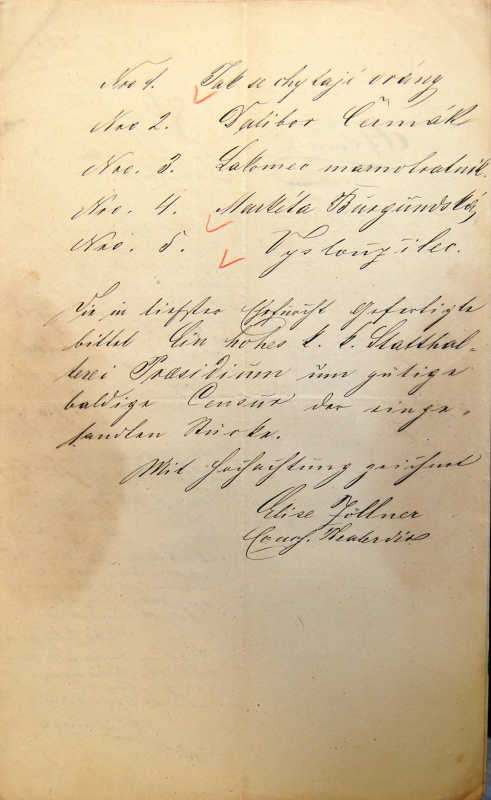 Nro 1. Jak se chytají vrány
Nro 2. Dalibor Čermák
Nro. 3. Lakomec marnotratník.
Nro. 4. Markéta Burgundská,
Nro. 5. Vysloužilec.
Die in tiefster Ehrfurcht Gefertigte
bittet Ein hohes k. k. Statthal-
terei Præsidium um gütige
baldige Censur der einge-
sandten Stücke.
Mit Hochachtung zeichnet
Elise Zöllner
Conc. Theaterdir